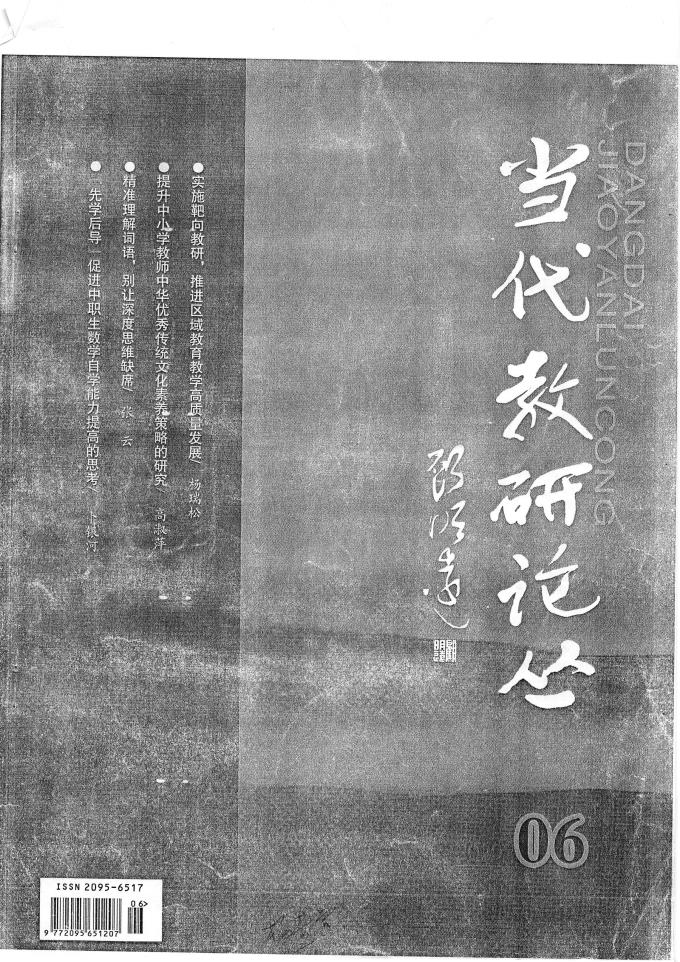 当代教研论丛
DANGDAI
JIAOYANLUNCONG
顾明远
● 实施靶向教研，推进区域教育教学高质量发展/ 杨瑞松
● 提升中小学教师中华优秀传统文化素养策略的研究/ 高淑萍
● 精准理解词语，别让深度思维缺席/ 张 云
● 先学后导 促进中职生数学自学能力提高的思考/ 卜银河
06
ISSN 2095-6517
06>
9 772095 651207